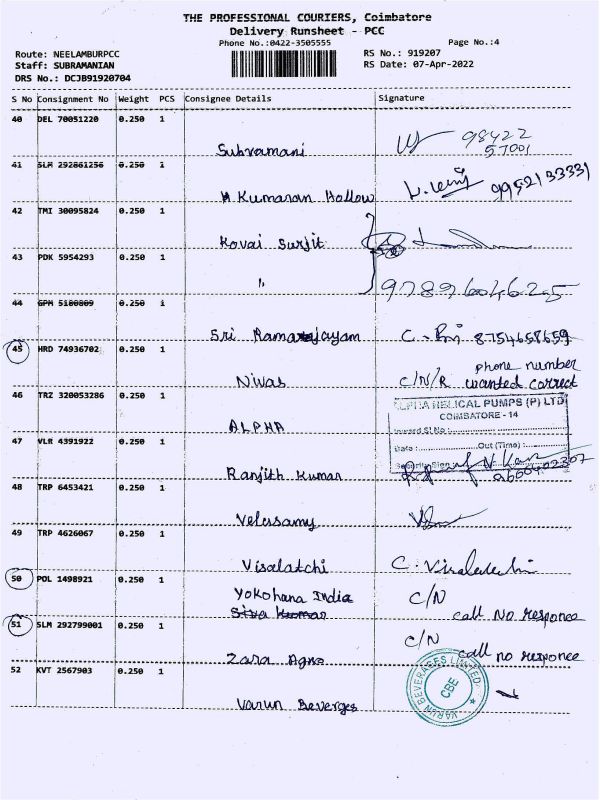 THE PROFESSIONAL COURIERS, Coimbatore
Delivery Runsheet - PCC
Phone No.:0422-3505555
Page No.:4
Route: NEELAMBURPCC
RS No.: 919207
Staff: SUBRAMANIAN
RS Date: 07-Apr-2022
DRS No.: DCJB91920704
S No Consignment No Weight PCS Consignee Details Signature
40 DEL 70051220 0.250 1
Subramani 98422
57001
41 SLM 292861256 0.250 1
Kumaran Hollow 9952133331
42 TMI 30095824 0.250 1
Kovai Surjit
43 PDK 5954293 0.250 1
" 97896046205
44 GPM 5180809 0.250 1
Sri Ramarajayam 8754658659
45 HRD 74936702 0.250 1
Niwas C/N/R phone number
wanted correct
46 TRZ 320053286 0.250 1
ALPHA
ALPHA HELICAL PUMPS (P) LTD
COIMBATORE - 14
Inward Sl No :
Date : Out (Time) :
Security Sign
47 VLR 4391922 0.250 1
Ranjith Kumar 9600402307
48 TRP 6453421 0.250 1
Velusamy
49 TRP 4626067 0.250 1
Visalatchi C. Visalatchi
50 POL 1498921 0.250 1
Yokohana India C/N
Siva Kumar call No responce
51 SLM 292799001 0.250 1
C/N
Zara Agro call no responce
52 KVT 2567903 0.250 1
Varun Beverges
VARUN BEVERAGES LIMITED
CBE